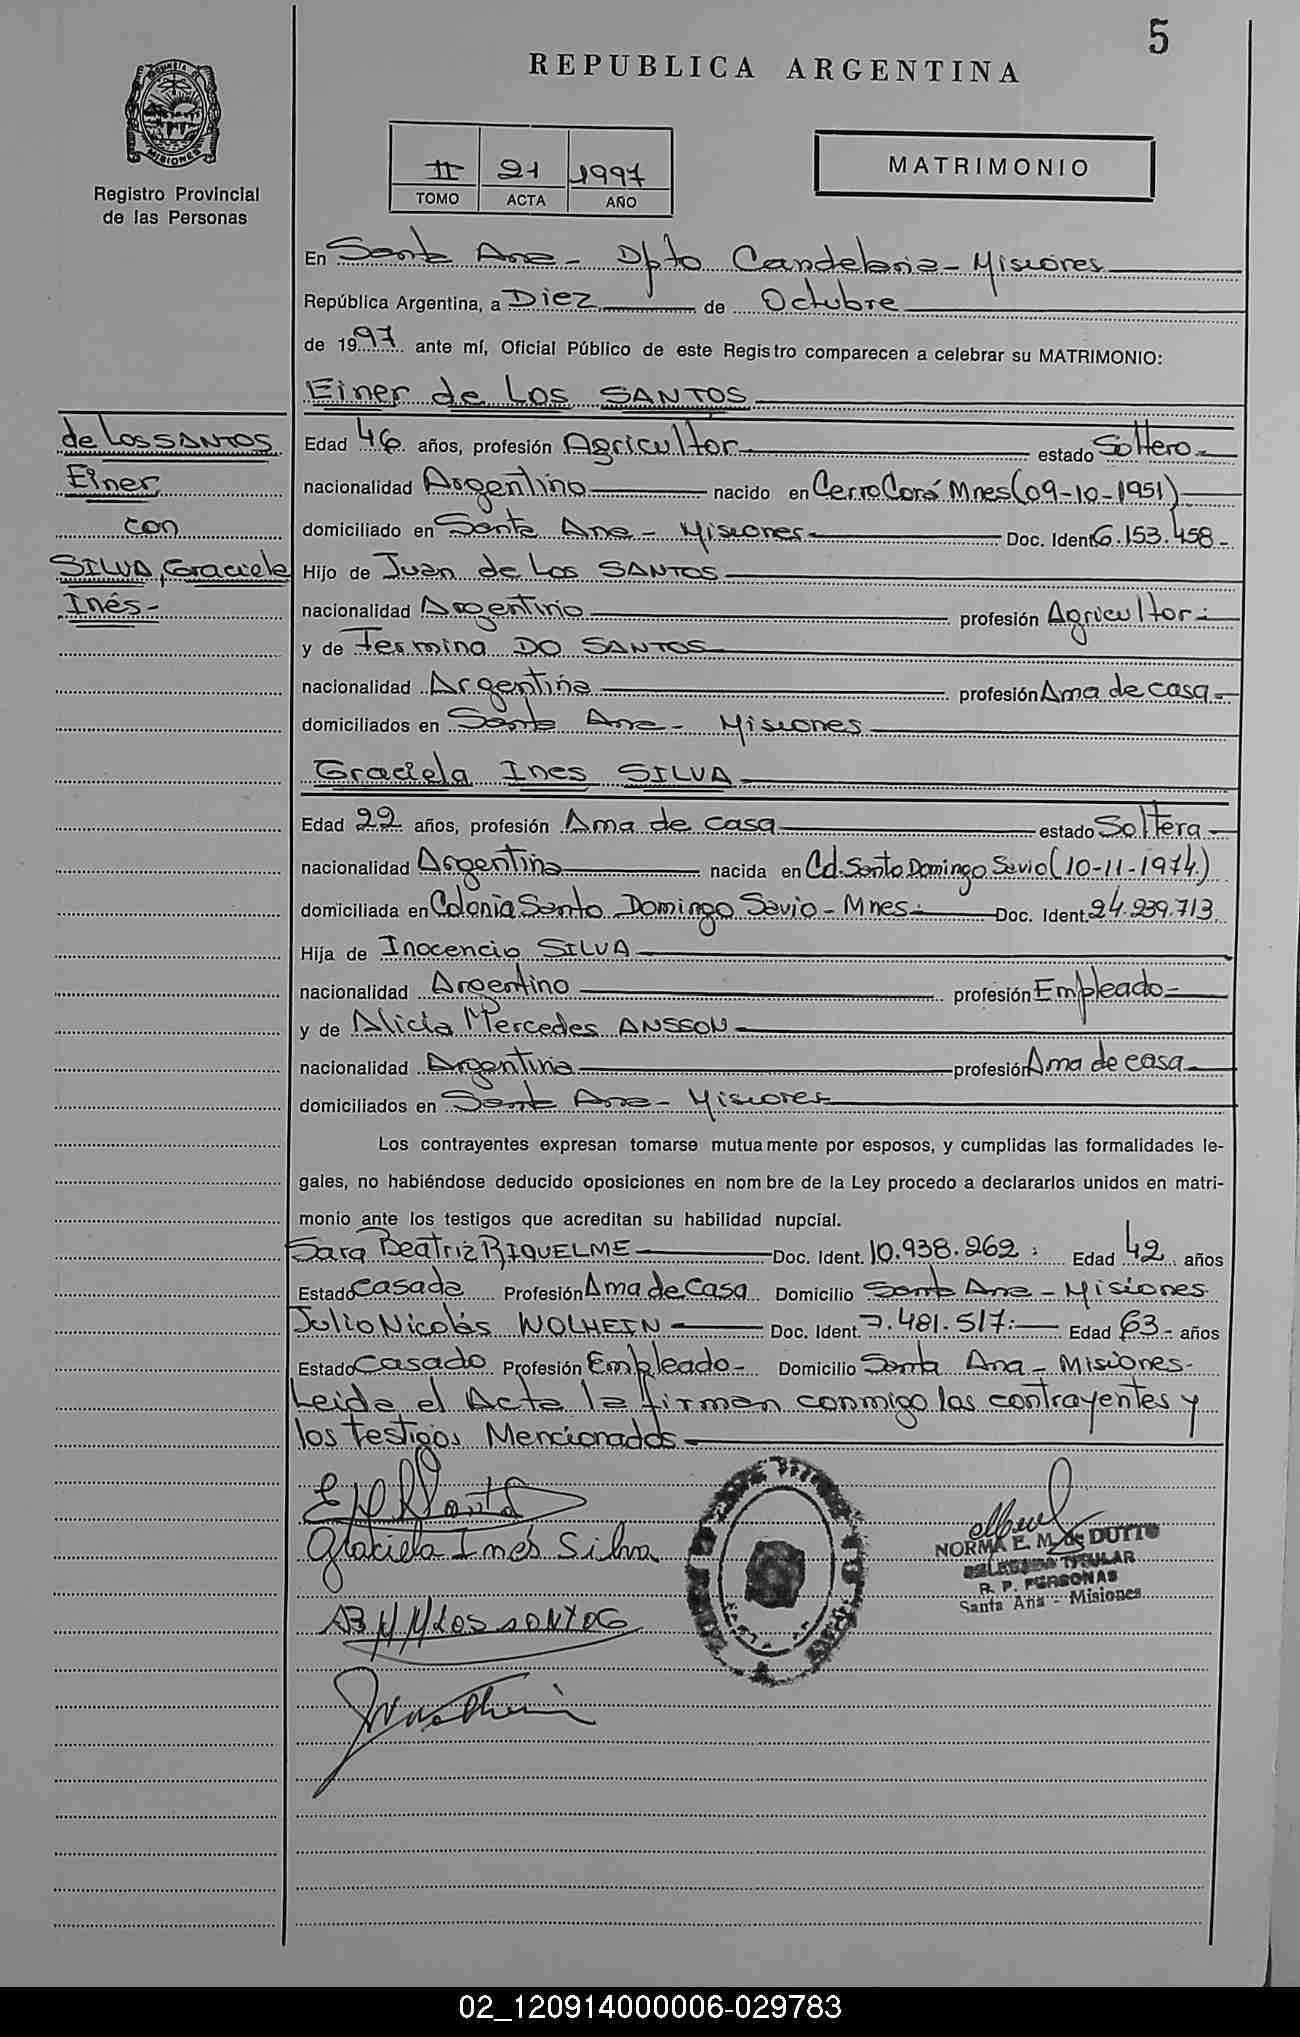 5
REPUBLICA ARGENTINA
PROVINCIA DE
MISIONES
Registro Provincial
de las Personas
II 21 1997
TOMO ACTA AÑO
MATRIMONIO
En Santa Ana - Dpto Candelaria - Misiones
República Argentina, a Diez de Octubre
de 1997 ante mí, Oficial Público de este Registro comparecen a celebrar su MATRIMONIO:
Einer de Los SANTOS
de Los SANTOS
Einer
con
SILVA, Graciela
Inés-
Edad 46 años, profesión Agricultor estado Soltero-
nacionalidad Argentino nacido en Cerro Corá Mnes (09-10-1951)
domiciliado en Santa Ana - Misiones Doc. Ident. 6.153.458-
Hijo de Juan de Los SANTOS
nacionalidad Argentino profesión Agricultor-
y de Fermina DO SANTOS
nacionalidad Argentina profesión Ama de casa-
domiciliados en Santa Ana - Misiones
Graciela Ines SILVA
Edad 22 años, profesión Ama de casa estado Soltera
nacionalidad Argentina nacida en Cd. Santo Domingo Savio (10-11-1974)
domiciliada en Colonia Santo Domingo Savio - Mnes- Doc. Ident. 24.239.713
Hija de Inocencio SILVA
nacionalidad Argentino profesión Empleado-
y de Alicia Mercedes ANSSON
nacionalidad Argentina profesión Ama de casa
domiciliados en Santa Ana - Misiones
Los contrayentes expresan tomarse mutuamente por esposos, y cumplidas las formalidades le-
gales, no habiéndose deducido oposiciones en nombre de la Ley procedo a declararlos unidos en matri-
monio ante los testigos que acreditan su habilidad nupcial.
Sara Beatriz RIQUELME Doc. Ident. 10.938.262 Edad 42 años
Estado Casada Profesión Ama de Casa Domicilio Santa Ana - Misiones
Julio Nicolás WOLHEIN Doc. Ident. 7.481.517 Edad 63- años
Estado Casado Profesión Empleado- Domicilio Santa Ana - Misiones-
Leida el Acta la firman conmigo los contrayentes y
los testigos Mencionados
Graciela Inés Silva
NORMA E. M. de DUTTO
DELEGADA TITULAR
R. P. PERSONAS
Santa Ana - Misiones
02_120914000006-029783